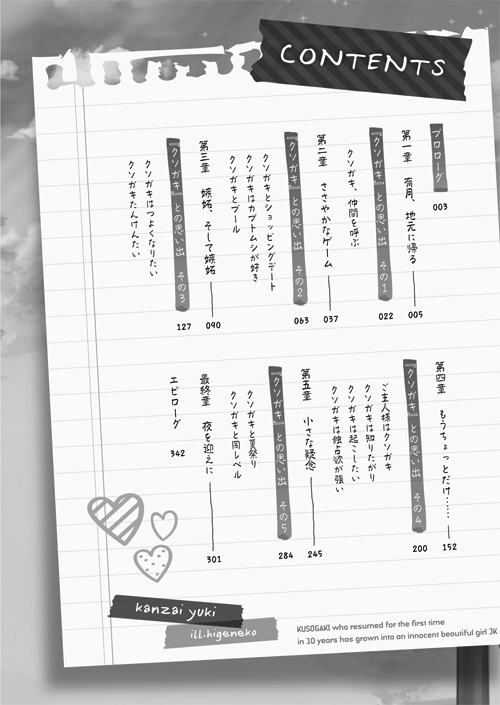 CONTENTS
プロローグ
003
第一章 有月、地元に帰る
005
『クソガキ』との思い出 その1
022
クソガキ、仲間を呼ぶ
第二章 ささやかなゲーム
037
『クソガキ』との思い出 その2
063
クソガキとショッピングデート
クソガキはカブトムシが好き
クソガキとプール
第三章 嫉妬、そして嫉妬
090
『クソガキ』との思い出 その3
127
クソガキはつよくなりたい
クソガキたんけんたい
第四章 もうちょっとだけ……
152
『クソガキ』との思い出 その4
200
ご主人様はクソガキ
クソガキは知りたがり
クソガキは起こしたい
クソガキは独占欲が強い
第五章 小さな疑念
245
『クソガキ』との思い出 その5
284
クソガキと夏祭り
クソガキと同レベル
最終章 夜を迎えに
301
エピローグ
342
kanzai yuki
ill.higeneko
KUSOGAKI who resumed for the first time
in 10 years has grown into an innocent beautiful girl JK